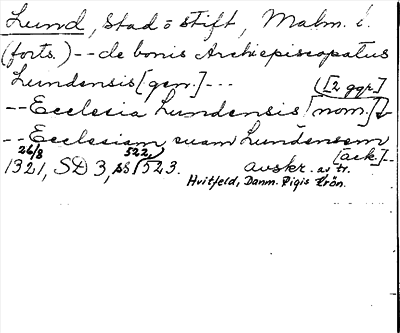 Lund, stad o stift, Malm. l.
(forts.) -- de bonis Archiepiscopatus
Lundensis [gen.] --- ([2 ggr.]
-- Ecclesia Lundensis [nom.]
-- Ecclesiam suam Lundensem
[ack] --
26/8 1321, SD 3, ss 522, 523. avskr. av tr.
Hvitfeld, Danm. Rigis Krön.